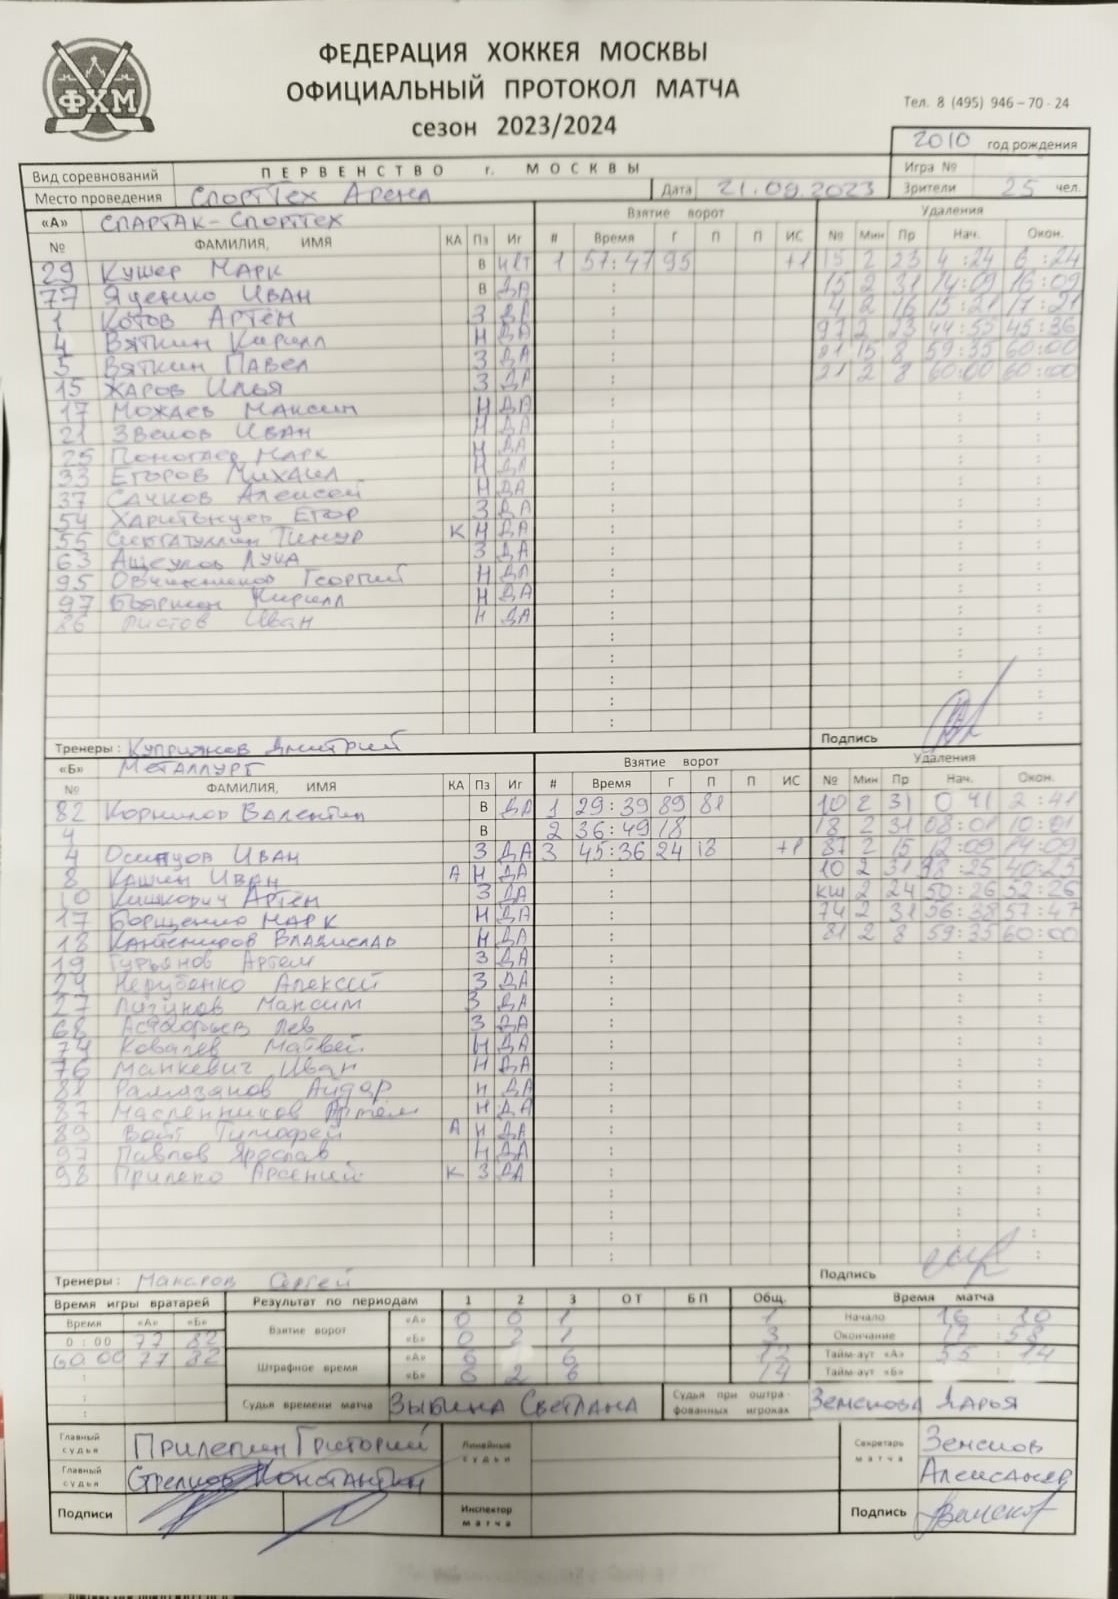 ФХМ
ФЕДЕРАЦИЯ ХОККЕЯ МОСКВЫ
ОФИЦИАЛЬНЫЙ ПРОТОКОЛ МАТЧА
сезон 2023/2024
Тел. 8 (495) 946 – 70 - 24
2010 год рождения
Вид соревнований ПЕРВЕНСТВО г. МОСКВЫ Игра №
Место проведения СпортТех Арена Дата 21.09.2023 Зрители 25 чел.
«А» СПАРТАК-Спорттех Взятие ворот Удаления
№ ФАМИЛИЯ, ИМЯ КА Пз Иг # Время Г П П ИС № Мин Пр Нач. Окон.
29 Кушер Марк В 1 57:47 95 +1 15 2 23 4:24 6:24
77 Яценко Иван В ДА : 15 2 31 14:09 16:09
1 Котов Артём З ДА : 4 2 16 15:21 17:21
4 Вяткин Кирилл Н ДА : 97 2 23 44:55 45:36
5 Вяткин Павел З ДА : 21 15 8 59:35 60:00
15 Жаров Илья З ДА : 21 2 8 60:00 60:00
17 Можаев Максим Н ДА :
21 Звенов Иван Н ДА :
25 Марк Н ДА :
33 Егоров Михаил Н ДА :
37 Сачков Алексей Н ДА :
54 Егор З ДА :
55 Тимур К Н ДА :
63 Лука З ДА :
95 Овчинников Георгий Н ДА :
97 Кирилл Н ДА :
86 Листов Иван Н ДА :
Тренеры: Куприянов Дмитрий Подпись
«Б» Металлург Взятие ворот Удаления
№ ФАМИЛИЯ, ИМЯ КА Пз Иг # Время Г П П ИС № Мин Пр Нач. Окон.
82 Корнилов Валентин В ДА 1 29:39 89 81 10 2 31 0 41 2:41
4 В 2 36:49 18 18 2 31 08:01 10:01
4 Осинцов Иван З ДА 3 45:36 24 18 +1 87 2 15 12:09 14:09
8 Кашин Иван А Н ДА : 10 2 31 38:25 40:25
10 Кишкорич Артём З ДА : КШ 2 24 50:26 52:26
17 Борщенко Марк Н ДА : 74 2 31 56:38 57:47
18 Кантемиров Владислав Н ДА : 81 2 8 59:35 60:00
19 Гурьянов Артём З ДА :
24 Нерубенко Алексей З ДА :
27 Лизунов Максим З ДА :
68 Астафьев Лев З ДА :
74 Ковалев Матвей Н ДА :
76 Манкевич Иван Н ДА :
81 Рамазанов Айдар Н ДА :
87 Масленников Артём Н ДА :
89 Войт Тимофей А Н ДА :
97 Павлов Ярослав Н ДА :
98 Прилепо Арсений К З ДА :
Тренеры: Макаров Сергей Подпись
Время игры вратарей Результат по периодам 1 2 3 ОТ БП Общ. Время матча
Время «А» «Б» Взятие ворот «А» 0 0 1 1 Начало 16:30
0:00 77 82 «Б» 0 2 1 3 Окончание 17:58
60 00 77 82 Штрафное время «А» 6 6 Тайм-аут «А» 55:14
«Б» 6 2 6 14 Тайм-аут «Б»
Судья времени матча Зыбина Светлана Судья при оштрафованных игроках Земскова Дарья
Главный судья Прилепин Григорий Линейные судьи Секретарь матча Земсков
Главный судья Стрелков Константин Александр
Подписи Инспектор матча Подпись